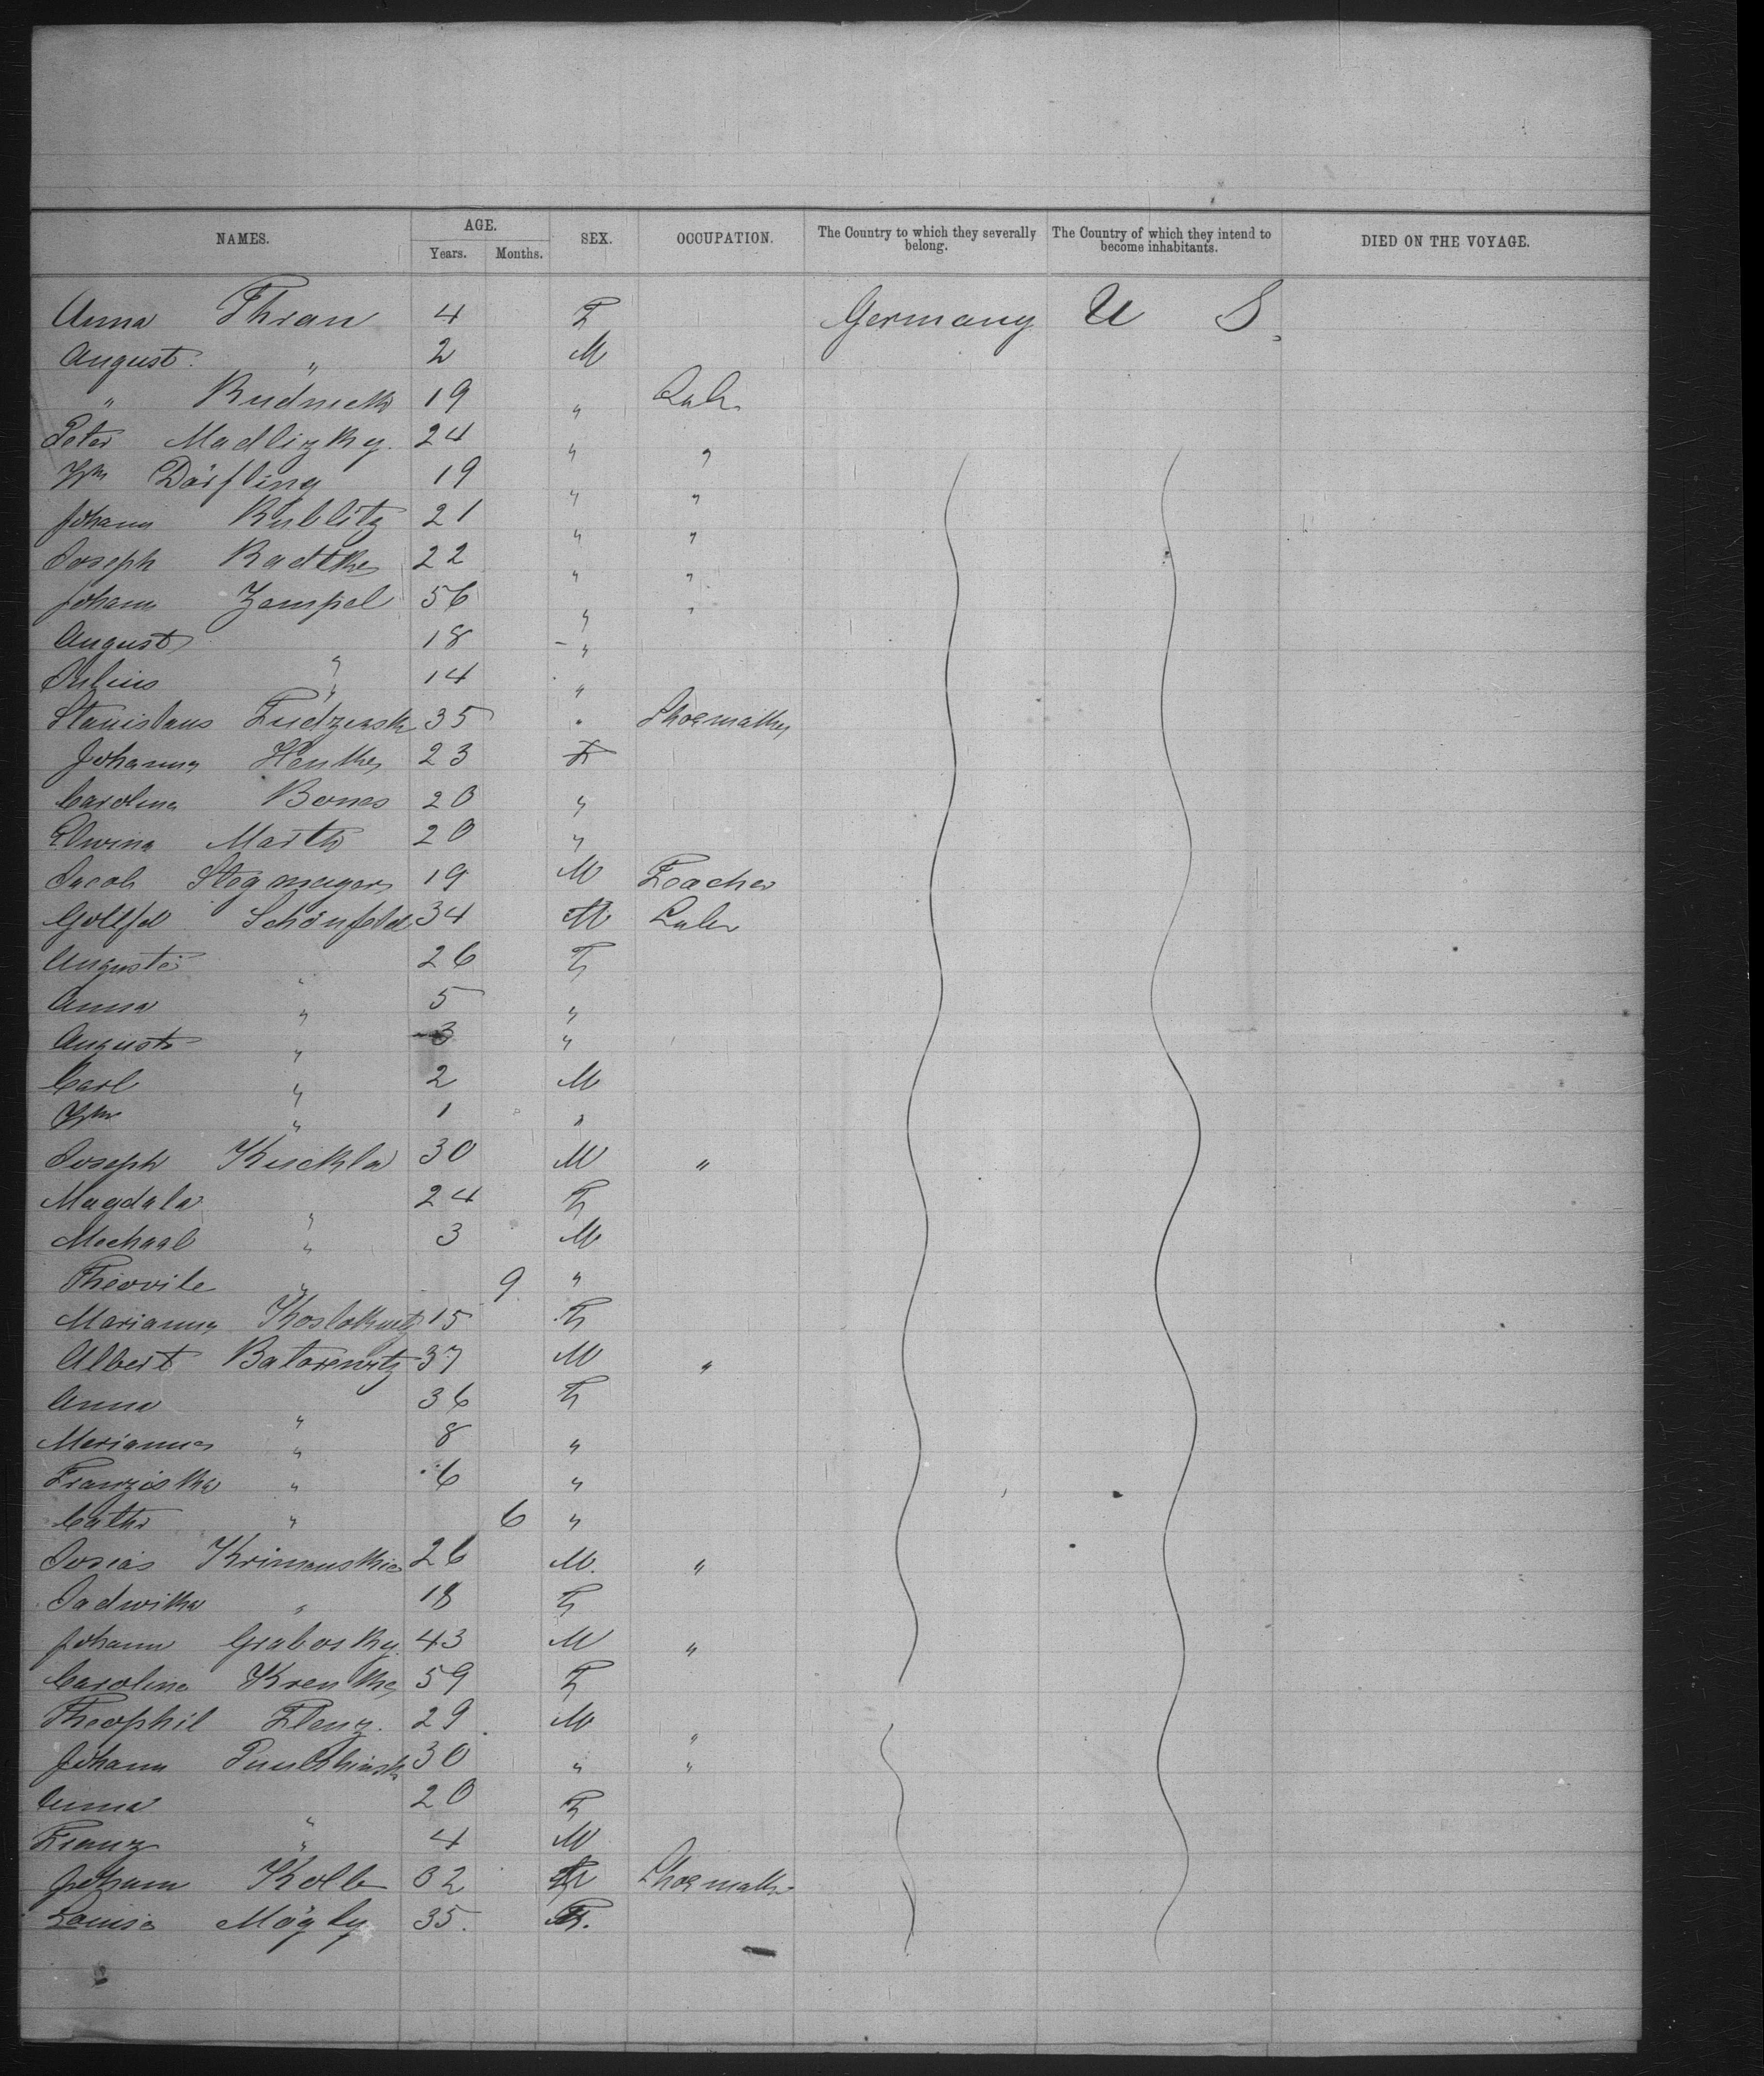 NAMES. AGE. SEX. OCCUPATION. The Country to which they severally belong. The Country of which they intend to become inhabitants. DIED ON THE VOYAGE.
Years. Months.
Anna Thran 4 F Germany U S.
August " 2 M
" Rudnick 19 " Lab
Peter Madlizky. 24 " "
Wm Dörfling 19 " "
Johann Kublitz 21 " "
Joseph Radtke 22 " "
Johann Zempel 56 " "
August " 18 "
Julius " 14 "
Stanislaus 35 " Shoemaker
Johanna Henke 23 F
Carolina Bones 20 "
Elwina Marth 20 "
Jacob Stegmayer 19 M Teacher
Gottfd Schönfeld 34 M Labr
Auguste " 26 F
Anna " 5 "
Auguste " 3 "
Carl " 2 M
Wm " 1 "
Joseph Kuckla 30 M "
Magdala " 24 F
Mechael " 3 M
Theovile " 9 "
Marianna 15 F
Albert Batorewitz 37 M "
Anna " 36 F
Marianna " 8 "
Franziska " 6 "
Cathr " 6 "
Josias 26 M. "
Jadwika " 18 F
Johann Grabosky 43 M "
Carolina Krenke 59 F
Theophil Flenz. 29 M "
Johann 30 " "
Anna " 20 F
Franz " 4 M
Johann Kolb 32 M Shoemakr
Louise Mögly 35. F.